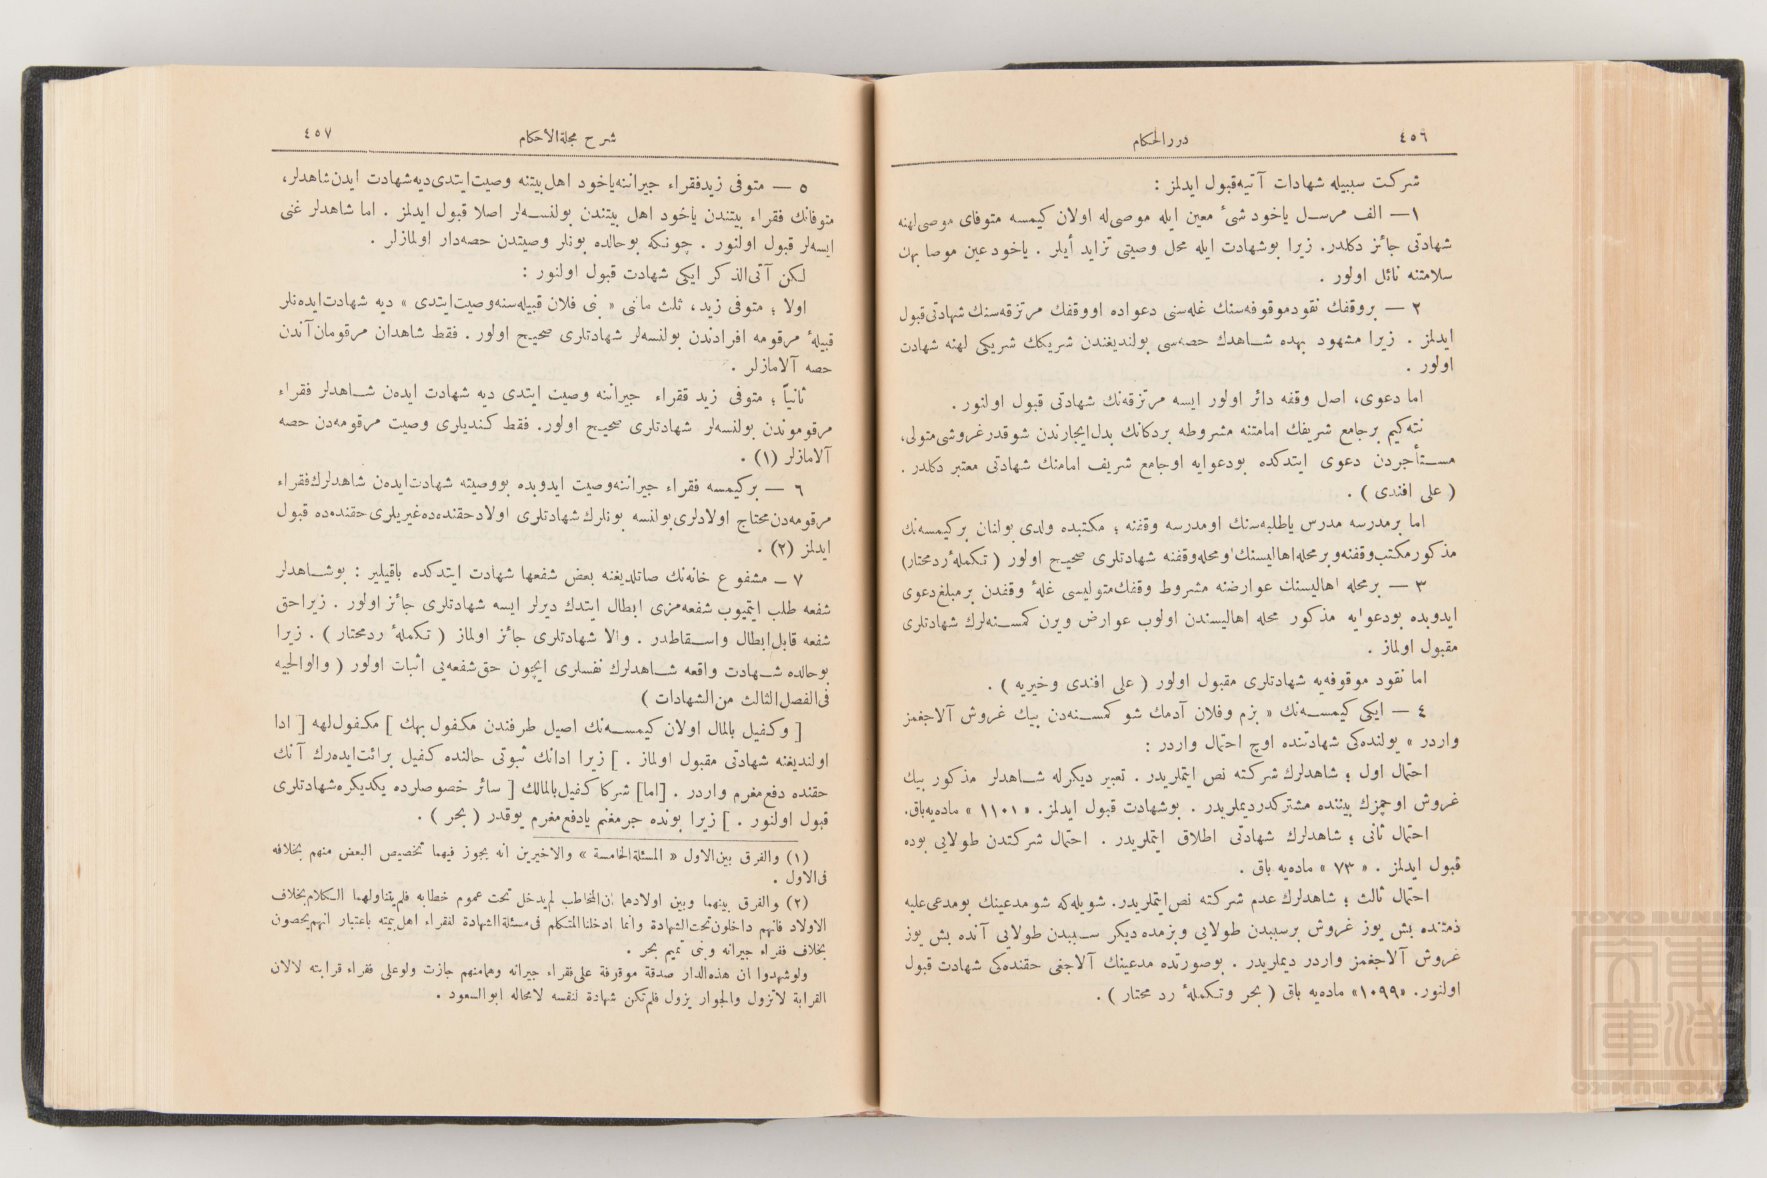 ٤٥٦
دررالحكام
شركت سببيله شهادات آتيه قبول ايدلمز :
١— الف مرسل ياخود شئ معين ايله موصى له اولان كيمسه متوفاى موصى لهنه
شهادتى جائز دكلدر. زيرا بوشهادت ايله محل وصيتى تزايد أيلر . ياخود عين موصا بهن
سلامتنه نائل اولور .
٢ — بروقفك نقودموقوفه سنك غله سنى دعواده اووقفك مرتزقه سنك شهادتى قبول
ايدلمز . زيرا مشهود بهده شاهدك حصه سى بولنديغندن شريكك شريكى لهنه شهادت
اولور .
اما دعوى، اصل وقفه دائر اولور ايسه مرتزقه نك شهادتى قبول اولنور .
نته كيم برجامع شريفك امامتنه مشروطه بردكانك بدل ايجارندن شوقدرغروشى متولى،
مستأجردن دعوى ايتدكده بودعوايه اوجامع شريف امامنك شهادتى معتبر دكلدر .
( على افندى ) .
اما برمدرسه مدرس ياطلبه سنك اومدرسه وقفنه ؛ مكتبده ولدى بولنان بركيمسه نك
مذكورمكتب وقفنه وبرمحله اهاليسنك اومحله وقفنه شهادتلرى صحيح اولور ( تكملهٔ ردمحتار)
٣ — برمحله اهاليسنك عوارضنه مشروط وقفك متوليسى غلهٔ وقفدن برمبلغ دعوى
ايدوبده بودعوايه مذكور محله اهاليسندن اولوب عوارض ويرن كمسنه لرك شهادتلرى
مقبول اولماز .
اما نقود موقوفه يه شهادتلرى مقبول اولور ( على افندى وخيريه ) .
٤ — ايكى كيمسه نك « بزم وفلان آدمك شو كمسنه دن بيك غروش آلاجغمز
واردر » يولنده كى شهادتنده اوچ احتمال واردر :
احتمال اول ؛ شاهدلرك شركته نص ايتملريدر . تعبير ديكرله شاهدلر مذكور بيك
غروش اوچمزك بيننده مشتركدرديملريدر . بوشهادت قبول ايدلمز. « ١١٠١ » ماده يه باق.
احتمال ثانى ؛ شاهدلرك شهادتى اطلاق ايتملريدر . احتمال شركتدن طولايى بوده
قبول ايدلمز . « ٧٣ » ماده يه باق .
احتمال ثالث ؛ شاهدلرك عدم شركته نص ايتملريدر. شويله كه شو مدعينك بومدعى عليه
ذمتنده بش يوز غروش برسببدن طولايى وبزمده ديكر سببدن طولايى آنده بش يوز
غروش آلاجغمز واردر ديملريدر . بوصورتده مدعينك آلاجغى حقنده كى شهادت قبول
اولنور. «١٠٩٩» ماده يه باق ( بحر وتكملهٔ رد محتار ) .
شرح مجلة الاحكام
٤٥٧
٥ — متوفى زيدفقراء جيراننه ياخود اهل بيتنه وصيت ايتدى ديه شهادت ايدن شاهدلر،
متوفانك فقراء بيتندن ياخود اهل بيتندن بولنسه لر اصلا قبول ايدلمز . اما شاهدلر غنى
ايسه لر قبول اولنور . چونكه بوحالده بونلر وصيتدن حصه دار اولمازلر .
لكن آتى الذكر ايكى شهادت قبول اولنور :
اولا ؛ متوفى زيد، ثلث مالنى « بنى فلان قبيله سنه وصيت ايتدى » ديه شهادت ايده نلر
قبيلهٔ مرقومه افرادندن بولنسه لر شهادتلرى صحيح اولور . فقط شاهدان مرقومان آندن
حصه آلامازلر .
ثانياً ؛ متوفى زيد فقراء جيراننه وصيت ايتدى ديه شهادت ايدەن شاهدلر فقراء
مرقوموندن بولنسه لر شهادتلرى صحيح اولور. فقط كنديلرى وصيت مرقومه دن حصه
آلامازلر (١) .
٦ — بركيمسه فقراء جيراننه وصيت ايدوبده بووصيته شهادت ايدەن شاهدلرك فقراء
مرقومه دن محتاج اولادلرى بولنسه بونلرك شهادتلرى اولاد حقنده ده غيريلرى حقنده ده قبول
ايدلمز (٢) .
٧ — مشفوع خانه نك صاتلديغنه بعض شفعها شهادت ايتدكده باقيلير : بوشاهدلر
شفعه طلب ايتميوب شفعه مزى ابطال ايتدك ديرلر ايسه شهادتلرى جائز اولور . زيراحق
شفعه قابل ابطال واسقاطدر . والا شهادتلرى جائز اولماز ( تكملهٔ ردمحتار ) . زيرا
بوحالده شهادت واقعه شاهدلرك نفسلرى ايچون حق شفعه يى اثبات اولور ( والوالجيه
فى الفصل الثالث من الشهادات )
[ وكفيل بالمال اولان كيمسه نك اصيل طرفندن مكفول بهك ] مكفول لهه [ ادا
اولنديغنه شهادتى مقبول اولماز . ] زيرا ادانك ثبوتى حالنده كفيل برائت ايده رك آنك
حقنده دفع مغرم واردر . [اما] شركا كفيل بالمالك [ سائر خصوصلرده يكديكره شهادتلرى
قبول اولنور . ] زيرا بونده جرمغنم يادفع مغرم يوقدر ( بحر ) .
(١) والفرق بين الاول « المسئلة الخامسة » والاخيرين انه يجوز فيهما تخصيص البعض منهم بخلافه
فى الاول .
(٢) والفرق بينهما وبين اولادهما ان المخاطب لم يدخل تحت عموم خطابه فلم يتناولهما الكلام بخلاف
الاولاد فانهم داخلون تحت الشهادة وانما ادخلنا المتكلم فى مسئلة الشهادة لفقراء اهل بيته باعتبار انهم يحصون
بخلاف فقراء جيرانه وبنى تميم بحر .
ولوشهدوا ان هذه الدار صدقة موقوفة على فقراء جيرانه وهمامنهم جازت ولوعلى فقراء قرابته لالان
القرابة لاتزول والجوار يزول فلم تكن شهادة لنفسه لامحاله ابوالسعود .
TOYO BUNKO
東洋文庫